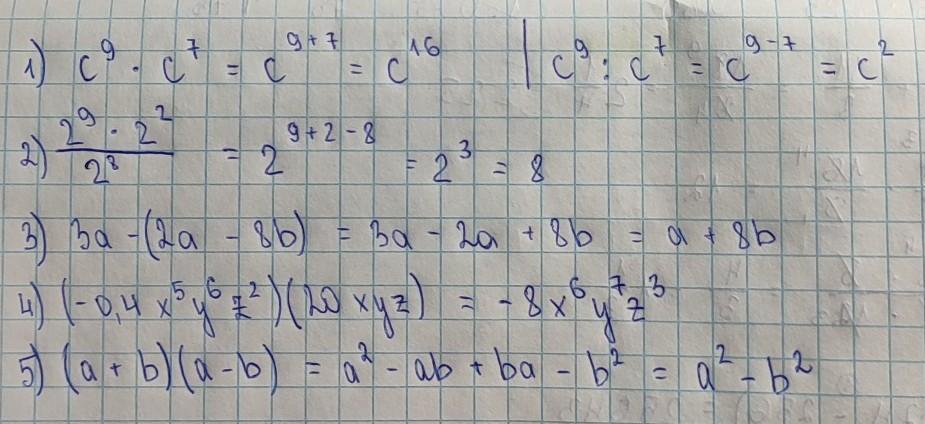 1) c⁹ · c⁷ = c⁹⁺⁷ = c¹⁶ | c⁹ : c⁷ = c⁹⁻⁷ = c²
2) (2⁹ · 2²)/2⁸ = 2⁹⁺²⁻⁸ = 2³ = 8
3) 3a - (2a - 8b) = 3a - 2a + 8b = a + 8b
4) (-0,4 x⁵y⁶z²)(20 xyz) = -8x⁶y⁷z³
5) (a + b)(a - b) = a² - ab + ba - b² = a² - b²